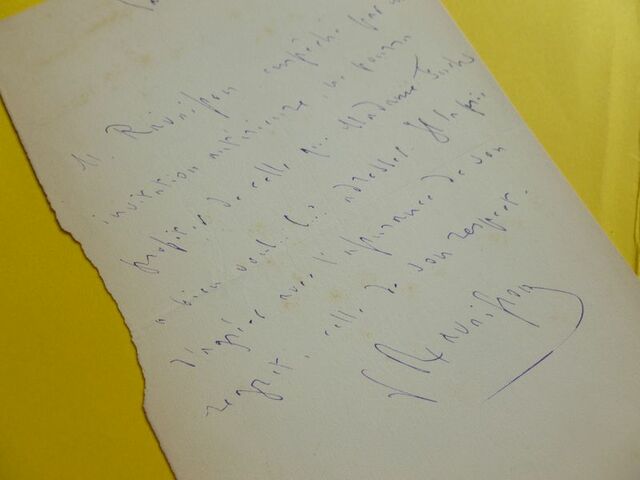 M. Ravaisson empêché par une
invitation antérieure, ne pourra
profiter de celle que Madame
a bien voulu lui adresser. Il la prie
d'agréer avec l'assurance de son
regret, celle de son respect.
Ravaisson